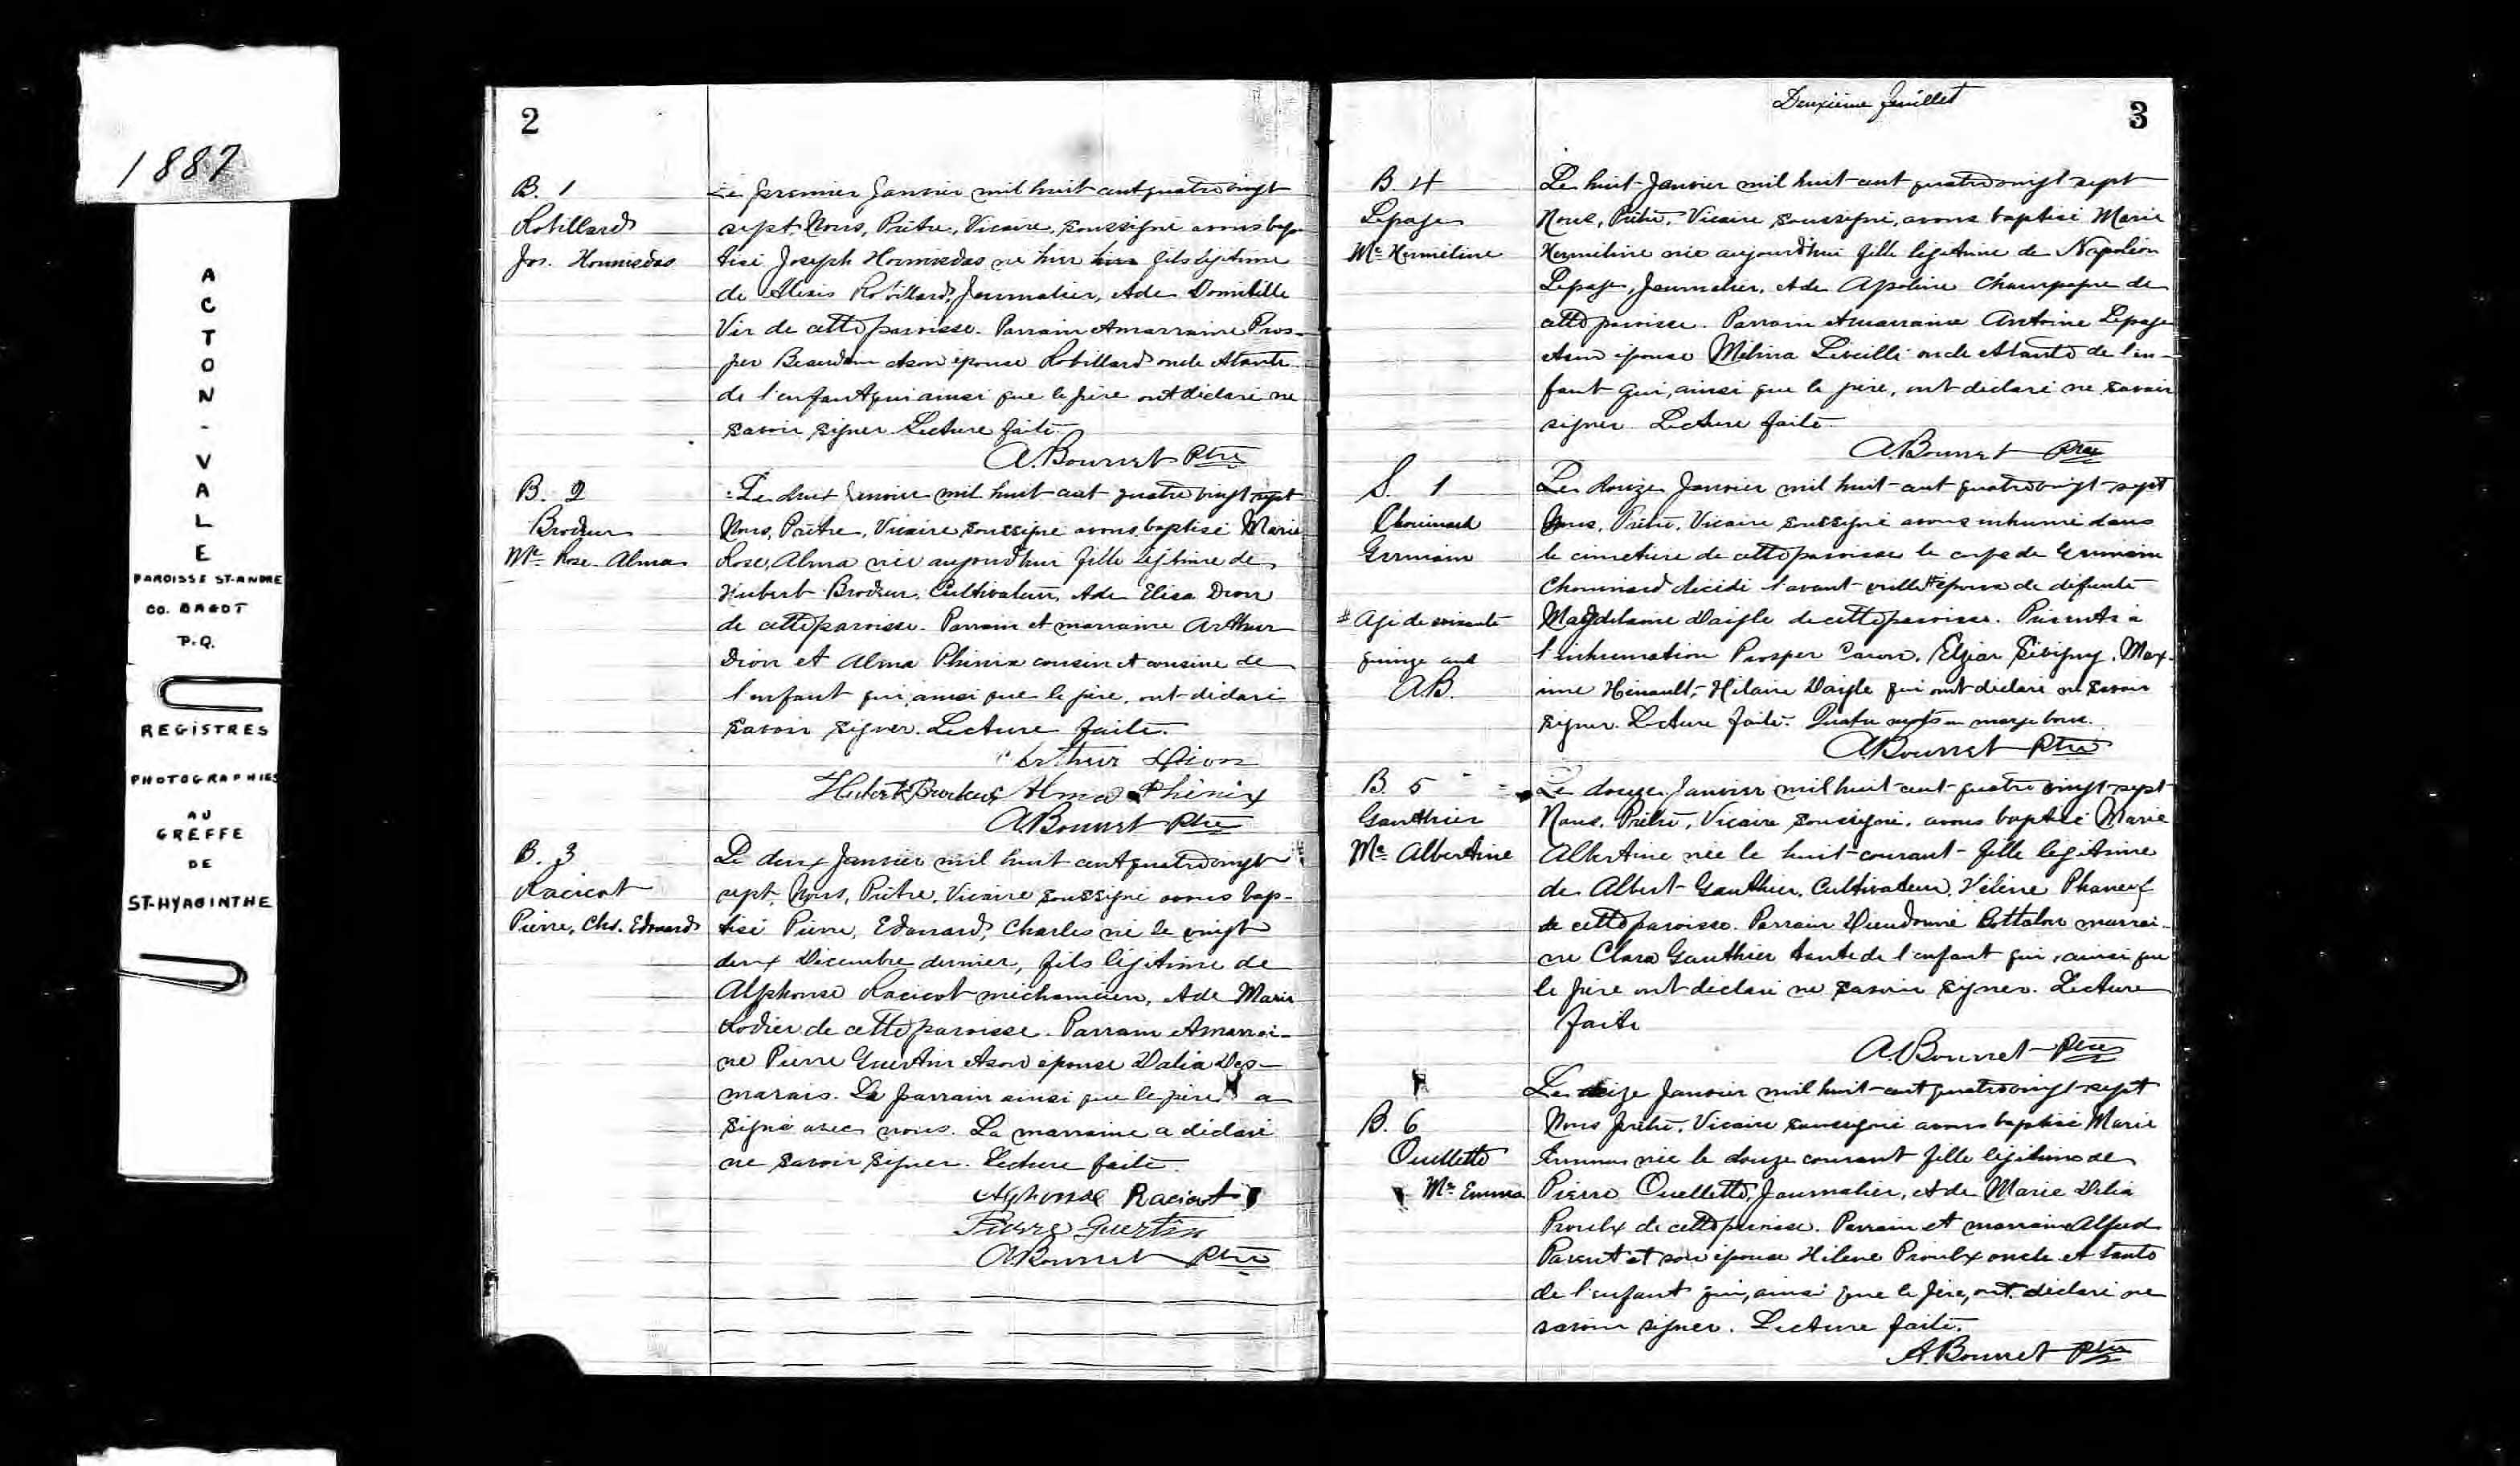 1887
ACTON-VALE
PAROISSE ST-ANDRE
CO. BAGOT
P.Q.
REGISTRES
PHOTOGRAPHIES
AU
GREFFE
DE
ST-HYACINTHE
2
B. 1
Robillard
Jos. Hormisdas
Le premier Janvier mil huit cent quatre vingt
sept, Nous, Prêtre, Vicaire, soussigné avons bap-
tisé Joseph Hormisdas né hier fils légitime
de Alexis Robillard, Journalier, et de Domitille
Vir de cette paroisse. Parrain et marraine Pros-
per Beaudoin et son épouse Robillard oncle et tante
de l'enfant qui ainsi que le père ont déclaré ne
savoir signer. Lecture faite.
A. Bournet Ptre
B. 2
Brodeur
Me Rose-Alma
Le deux Janvier mil huit cent quatre vingt sept
Nous, Prêtre, Vicaire soussigné avons baptisé Marie
Rose, Alma née aujourd'hui fille légitime de
Hubert Brodeur, Cultivateur, et de Elisa Dion
de cette paroisse. Parrain et marraine Arthur
Dion et Alma Phénix cousin et cousine de
l'enfant qui, ainsi que le père, ont déclaré
savoir signer. Lecture faite.
Arthur Dion
Hubert Brodeur Alma Phénix
A. Bournet Ptre
B. 3
Racicot
Pierre, Chs. Edouard
Le deux Janvier mil huit cent quatre vingt
sept, Nous, Prêtre, Vicaire soussigné avons bap-
tisé Pierre, Edouard, Charles né le vingt
deux Décembre dernier, fils légitime de
Alphonse Racicot méchanicien, et de Marie
Lodier de cette paroisse. Parrain et marrai-
ne Pierre Guertin et son épouse Dalia Des-
marais. Le parrain ainsi que le père a
signé avec nous. La marraine a déclaré
ne savoir signer. Lecture faite.
Alphonse Racicot
Pierre Guertin
A. Bournet Ptre
Deuxième feuillet
3
B. 4
Lepage
Me Herméline
Le huit Janvier mil huit cent quatre vingt sept
Nous, Prêtre, Vicaire soussigné, avons baptisé Marie
Herméline née aujourd'hui fille légitime de Napoléon
Lepage, Journalier, et de Apoline Champagne de
cette paroisse. Parrain et marraine Antoine Lepage
et son épouse Mélina Léveillé oncle et tante de l'en-
fant qui, ainsi que le père, ont déclaré ne savoir
signer. Lecture faite.
A. Bournet Ptre
S. 1
Chouinard
Germain
# Agé de soixante
quinze ans
A.B.
Le douze Janvier mil huit cent quatre vingt sept
Nous, Prêtre, Vicaire soussigné avons inhumé dans
le cimetière de cette paroisse le corps de Germain
Chouinard décédé l'avant-veille # époux de défunte
Magdelaine Daigle de cette paroisse. Présents à
l'inhumation Prosper Caron, Elzéar Sévigny, Max-
ime Hénault, Hilaire Daigle qui ont déclaré ne savoir
signer. Lecture faite. Quatre mots en marge bons.
A. Bournet Ptre
B. 5
Gauthier
Me Albertine
Le douze Janvier mil huit cent quatre vingt sept
Nous, Prêtre, Vicaire soussigné, avons baptisé Marie
Albertine née le huit courant fille légitime
de Albert Gauthier, Cultivateur, Hélène Phaneuf
de cette paroisse. Parrain Dieudonné marrai-
ne Clara Gauthier tante de l'enfant qui, ainsi que
le père ont déclaré ne savoir signer. Lecture
faite
A. Bournet Ptre
B. 6
Ouellette
Me Emma
Le Janvier mil huit cent quatre vingt sept
Nous prêtre, Vicaire soussigné avons baptisé Marie
Emma née le douze courant fille légitime de
Pierre Ouellette, Journalier, et de Marie Delia
Proulx de cette paroisse. Parrain et marraine Alfred
Parent et son épouse Hélène Proulx oncle et tante
de l'enfant qui, ainsi que le père, ont déclaré ne
savoir signer. Lecture faite.
A. Bournet Ptre